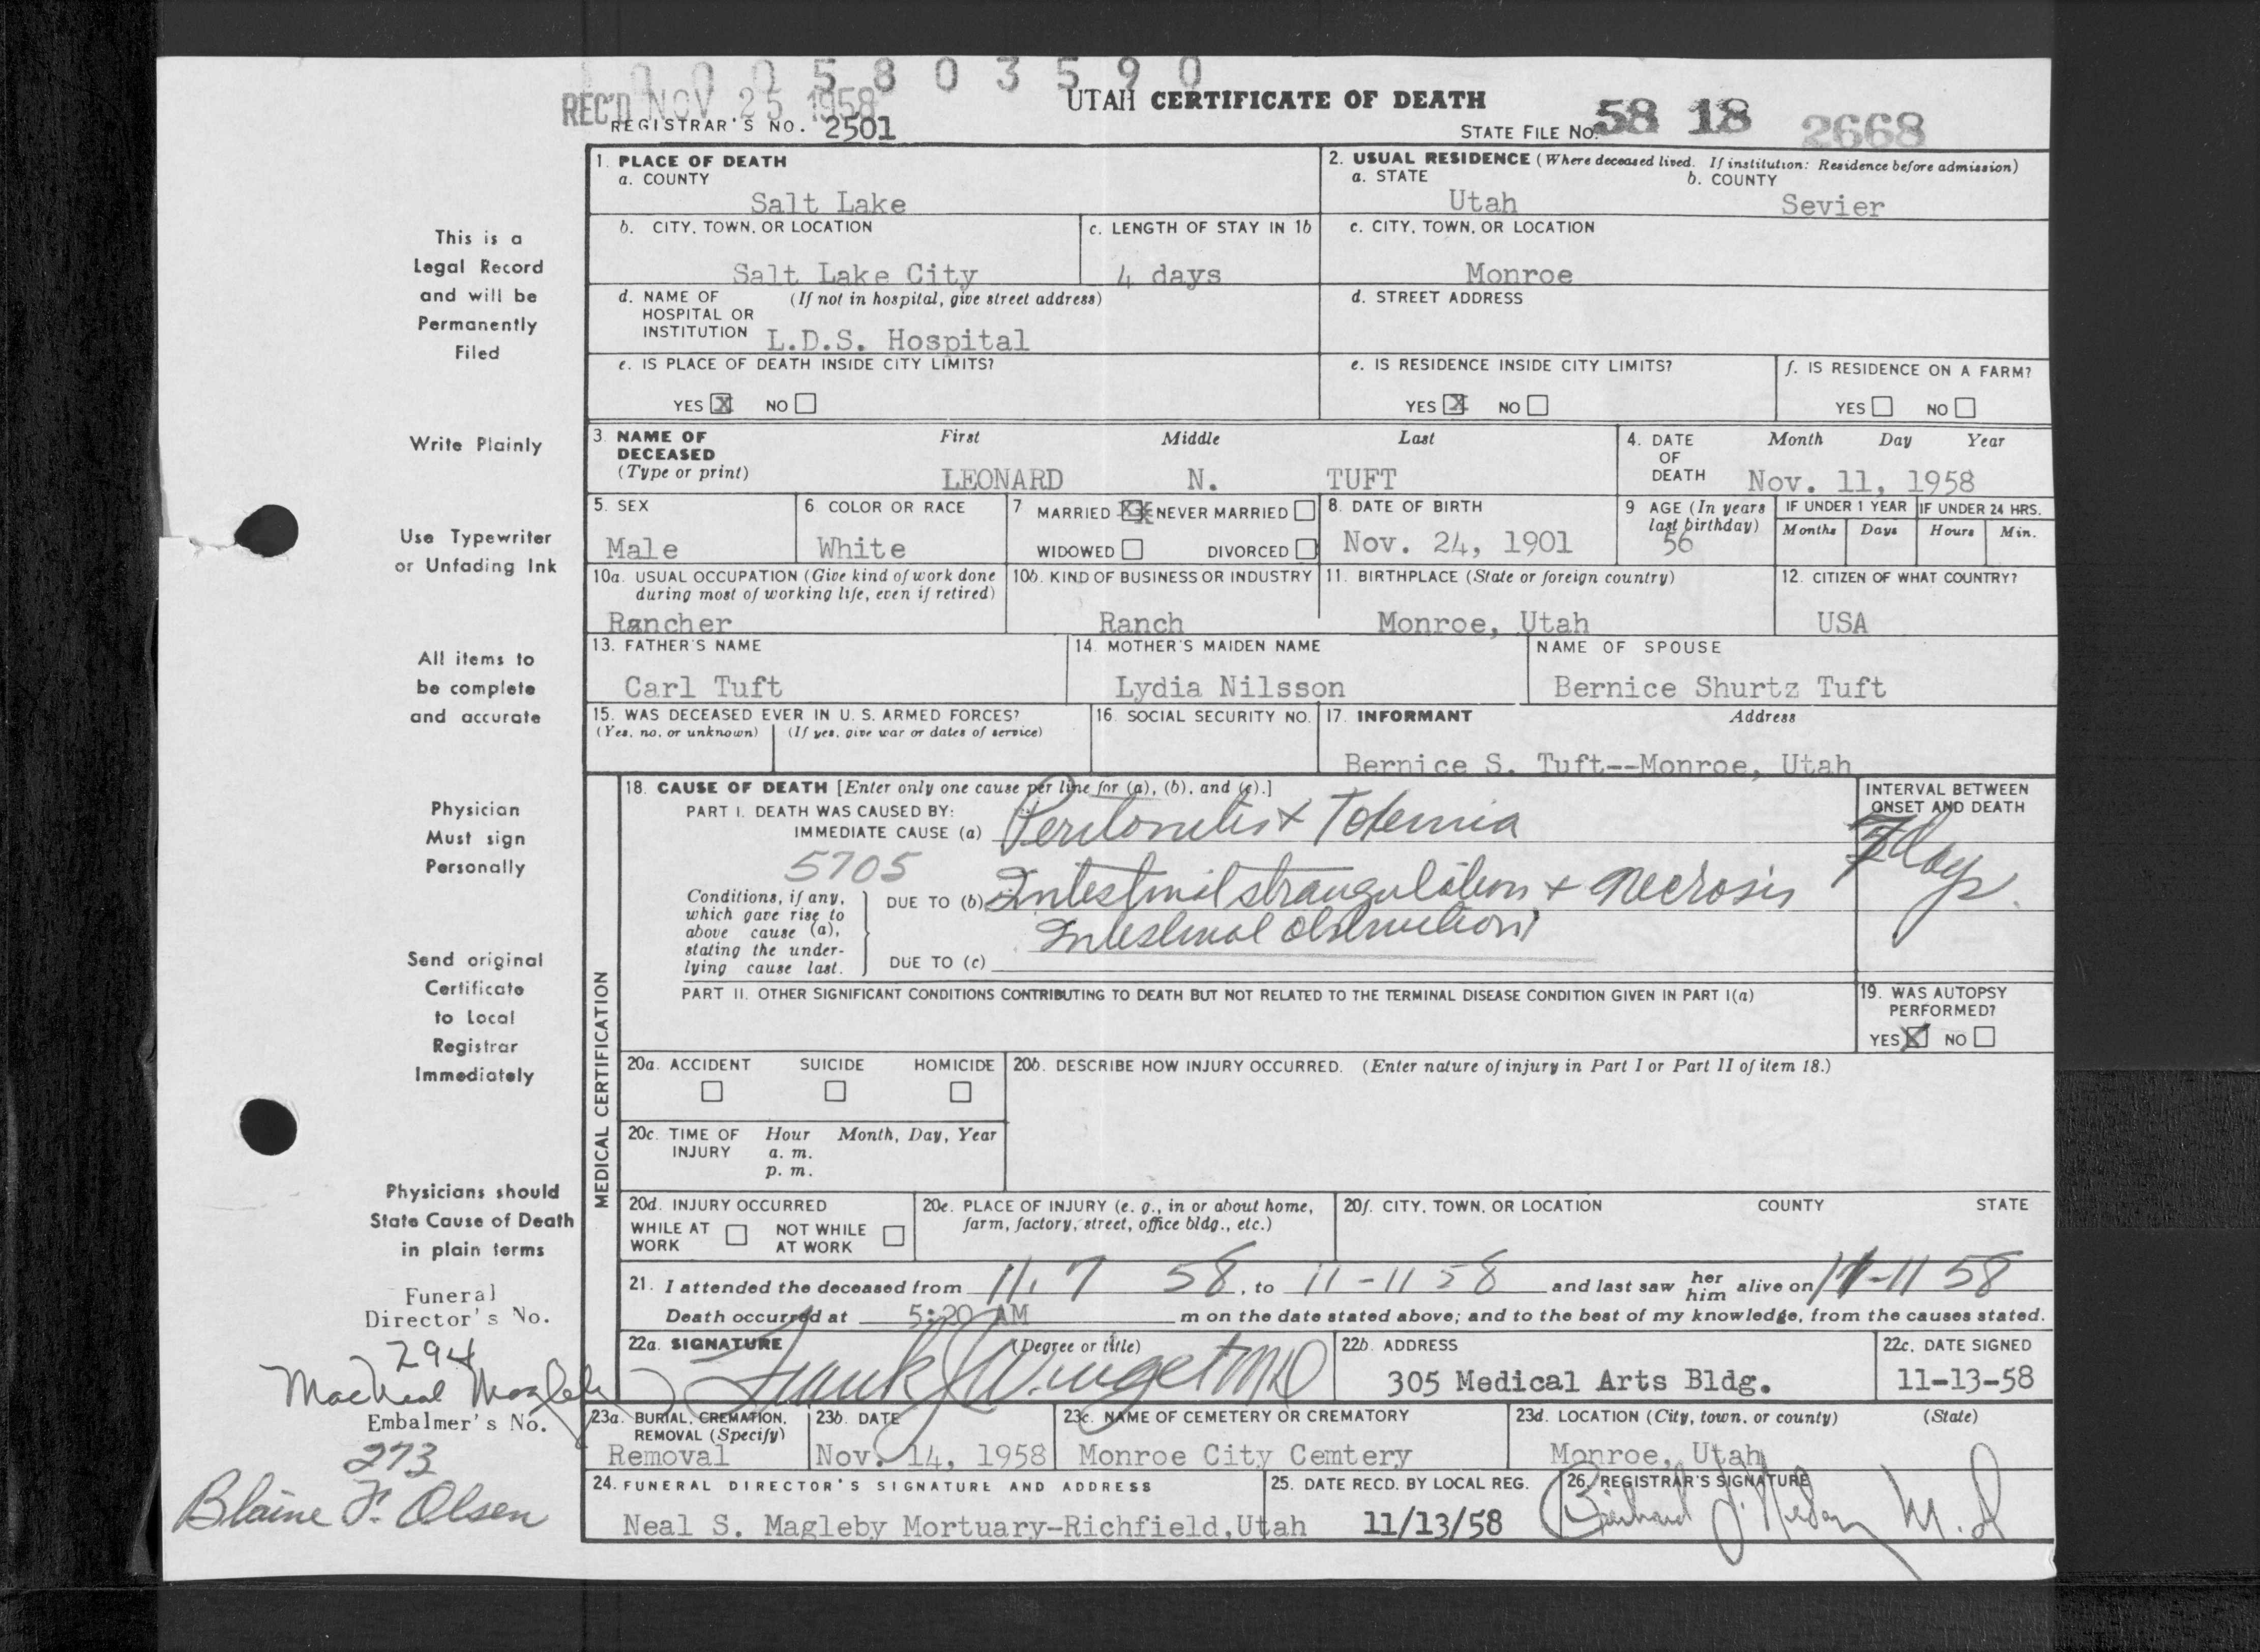 1 0 0 0 5 8 0 3 5 9 0
REC'D NOV 25 1958
UTAH CERTIFICATE OF DEATH
REGISTRAR'S NO. 2501
STATE FILE NO. 58 18 2668
1. PLACE OF DEATH
a. COUNTY
Salt Lake
2. USUAL RESIDENCE (Where deceased lived. If institution: Residence before admission)
a. STATE b. COUNTY
Utah Sevier
b. CITY, TOWN, OR LOCATION
Salt Lake City
c. LENGTH OF STAY IN 1b
4 days
c. CITY, TOWN, OR LOCATION
Monroe
d. NAME OF HOSPITAL OR INSTITUTION (If not in hospital, give street address)
L.D.S. Hospital
d. STREET ADDRESS
e. IS PLACE OF DEATH INSIDE CITY LIMITS?
YES X NO
e. IS RESIDENCE INSIDE CITY LIMITS?
YES X NO
f. IS RESIDENCE ON A FARM?
YES NO
3. NAME OF DECEASED (Type or print)
First Middle Last
LEONARD N. TUFT
4. DATE OF DEATH Month Day Year
Nov. 11, 1958
5. SEX
Male
6. COLOR OR RACE
White
7 MARRIED X NEVER MARRIED
WIDOWED DIVORCED
8. DATE OF BIRTH
Nov. 24, 1901
9 AGE (In years last birthday)
56
IF UNDER 1 YEAR IF UNDER 24 HRS.
Months Days Hours Min.
10a. USUAL OCCUPATION (Give kind of work done during most of working life, even if retired)
Rancher
10b. KIND OF BUSINESS OR INDUSTRY
Ranch
11. BIRTHPLACE (State or foreign country)
Monroe, Utah
12. CITIZEN OF WHAT COUNTRY?
USA
13. FATHER'S NAME
Carl Tuft
14. MOTHER'S MAIDEN NAME
Lydia Nilsson
NAME OF SPOUSE
Bernice Shurtz Tuft
15. WAS DECEASED EVER IN U. S. ARMED FORCES?
(Yes, no, or unknown) (If yes, give war or dates of service)
16. SOCIAL SECURITY NO.
17. INFORMANT Address
Bernice S. Tuft--Monroe, Utah
MEDICAL CERTIFICATION
18. CAUSE OF DEATH [Enter only one cause per line for (a), (b), and (c).]
PART I. DEATH WAS CAUSED BY:
IMMEDIATE CAUSE (a) Peritonitis +
5705
Conditions, if any, which gave rise to above cause (a), stating the underlying cause last.
DUE TO (b) Intestinal strangulation + Necrosis
Intestinal obstruction
DUE TO (c)
INTERVAL BETWEEN ONSET AND DEATH
7 days
PART II. OTHER SIGNIFICANT CONDITIONS CONTRIBUTING TO DEATH BUT NOT RELATED TO THE TERMINAL DISEASE CONDITION GIVEN IN PART I(a)
19. WAS AUTOPSY PERFORMED?
YES X NO
20a. ACCIDENT SUICIDE HOMICIDE
20b. DESCRIBE HOW INJURY OCCURRED. (Enter nature of injury in Part I or Part II of item 18.)
20c. TIME OF INJURY Hour Month, Day, Year
a. m.
p. m.
20d. INJURY OCCURRED
WHILE AT WORK NOT WHILE AT WORK
20e. PLACE OF INJURY (e. g., in or about home, farm, factory, street, office bldg., etc.)
20f. CITY, TOWN, OR LOCATION COUNTY STATE
21. I attended the deceased from 11. 7 58, to 11-11 58 and last saw her him alive on 11-11 58
Death occurred at 5:20 AM m on the date stated above; and to the best of my knowledge, from the causes stated.
22a. SIGNATURE (Degree or title)
Frank J Winget MD
22b. ADDRESS
305 Medical Arts Bldg.
22c. DATE SIGNED
11-13-58
23a. BURIAL, CREMATION, REMOVAL (Specify)
Removal
23b. DATE
Nov. 14, 1958
23c. NAME OF CEMETERY OR CREMATORY
Monroe City Cemtery
23d. LOCATION (City, town, or county) (State)
Monroe, Utah
24. FUNERAL DIRECTOR'S SIGNATURE AND ADDRESS
Neal S. Magleby Mortuary-Richfield,Utah
25. DATE RECD. BY LOCAL REG.
11/13/58
26. REGISTRAR'S SIGNATURE
M.D
This is a
Legal Record
and will be
Permanently
Filed
Write Plainly
Use Typewriter
or Unfading Ink
All items to
be complete
and accurate
Physician
Must sign
Personally
Send original
Certificate
to Local
Registrar
Immediately
Physicians should
State Cause of Death
in plain terms
Funeral
Director's No.
294
MacNeal Magleby
Embalmer's No.
273
Blaine F. Olsen